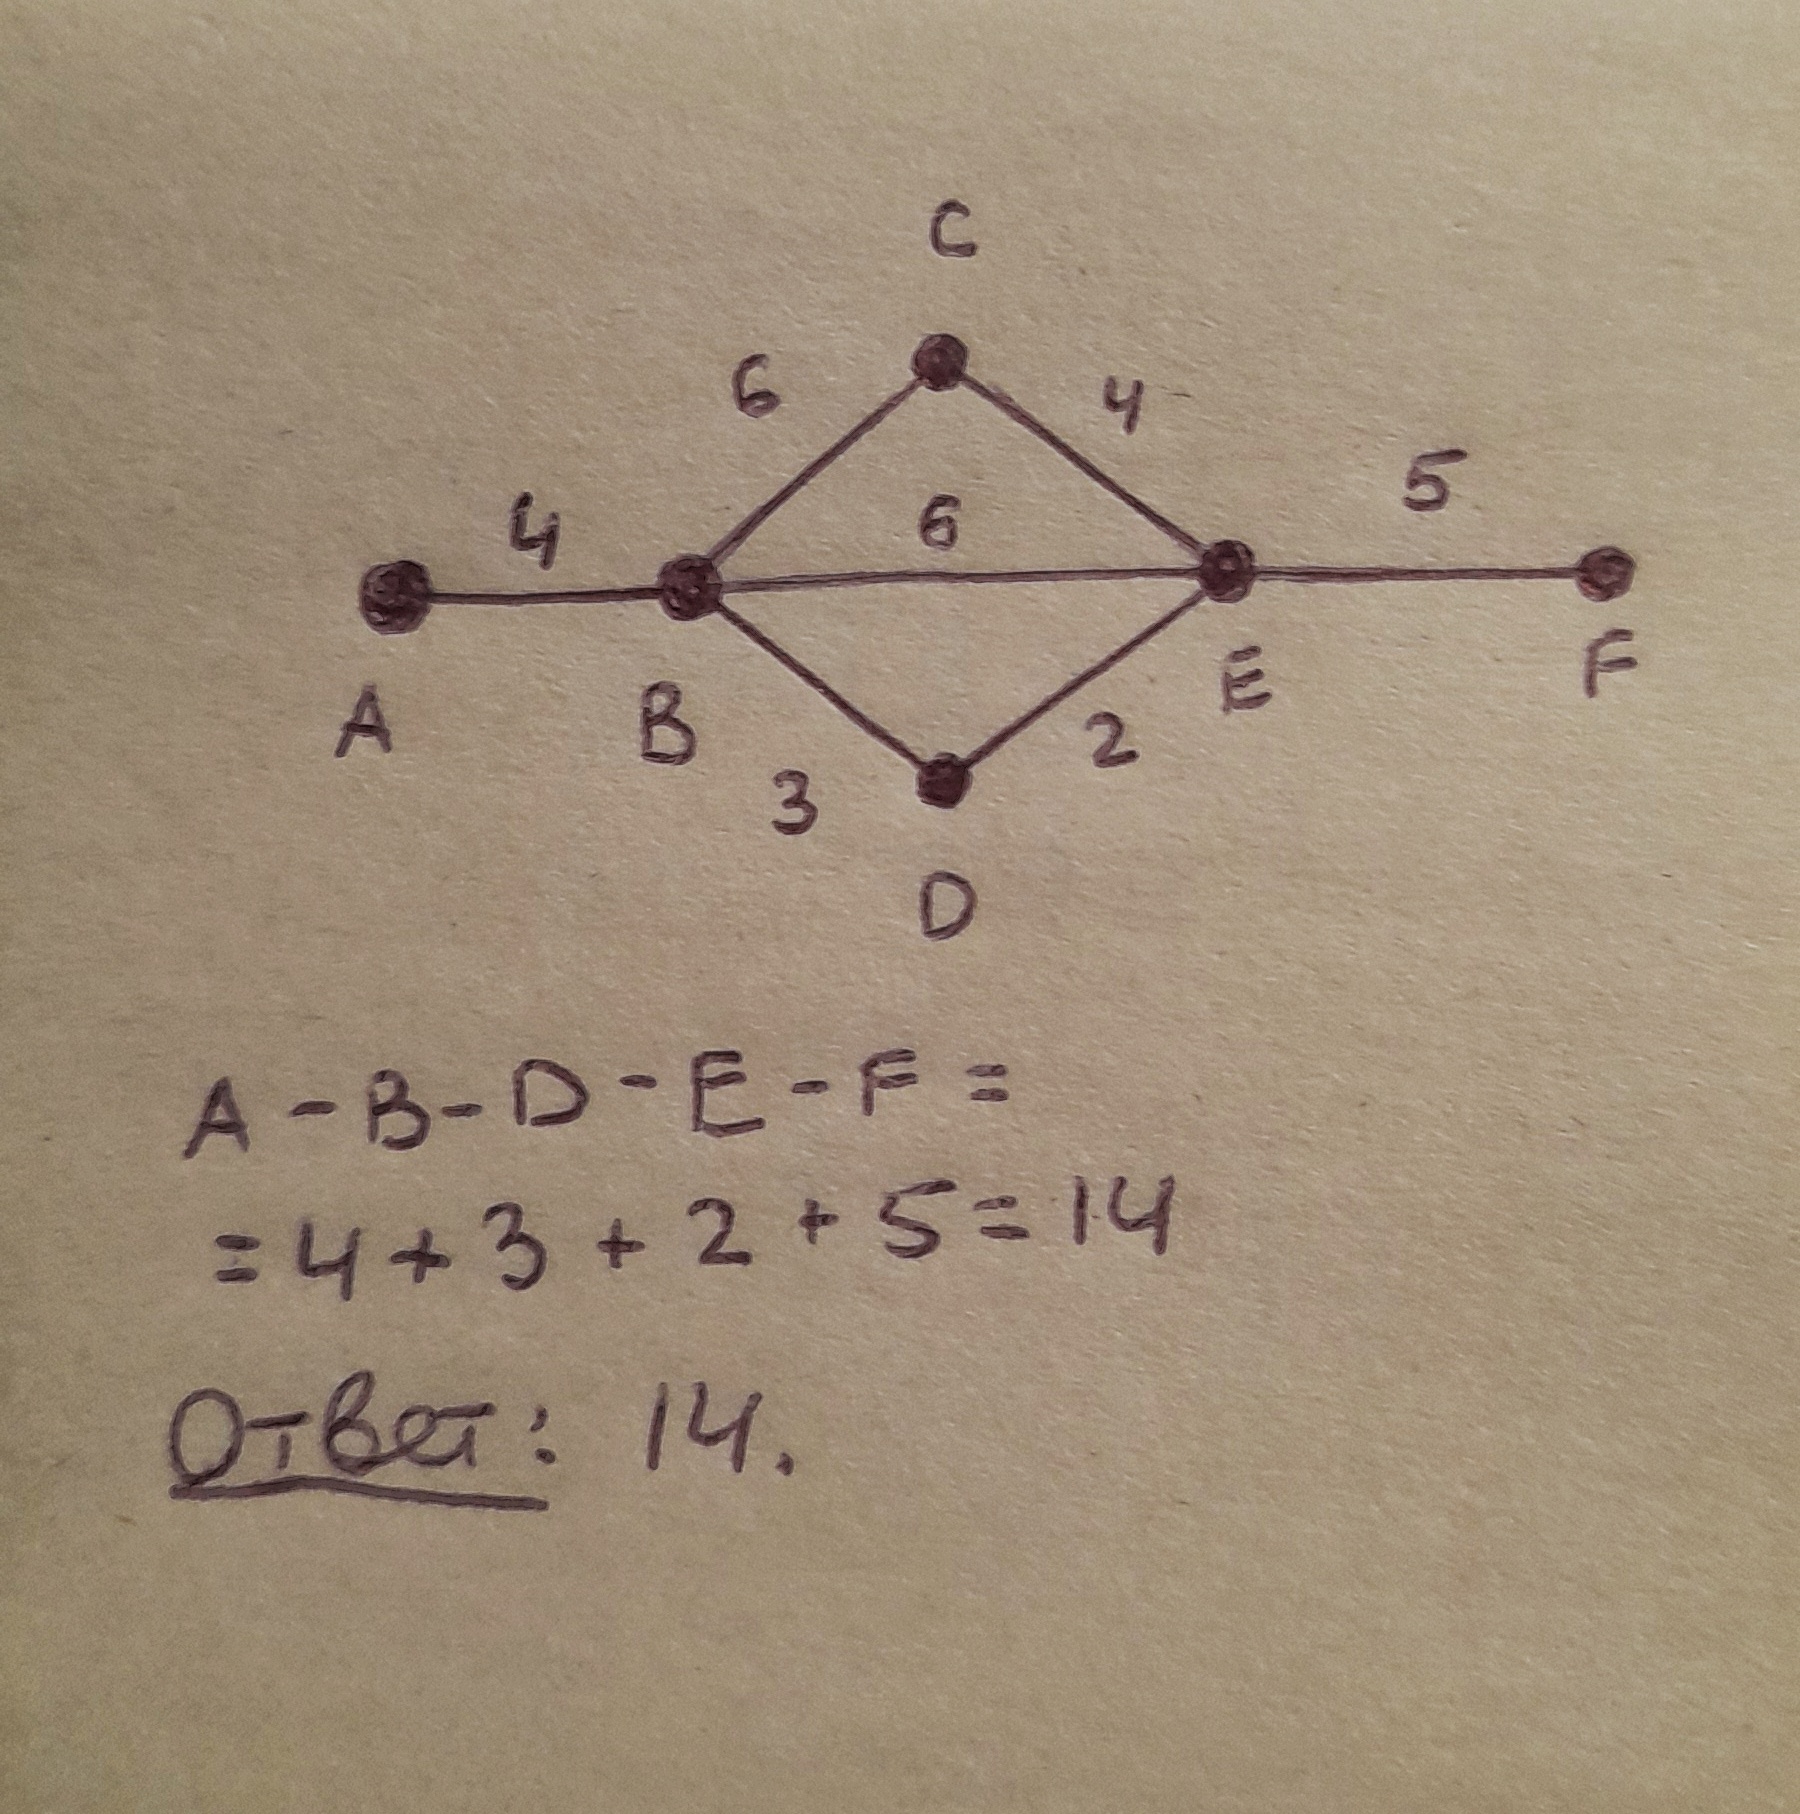 C
6
4
5
4
6
A
B
E
F
3
2
D
A - B - D - E - F =
= 4 + 3 + 2 + 5 = 14
Ответ: 14.